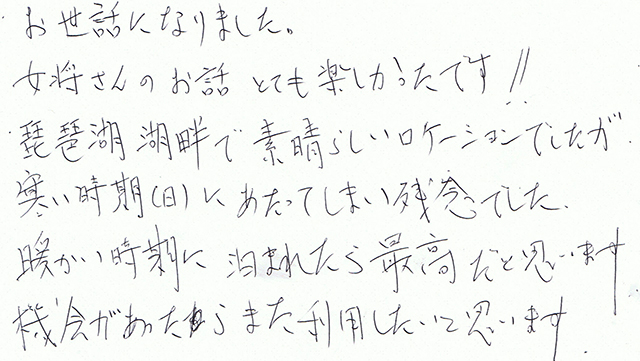 お世話になりました。
女将さんのお話 とても楽しかったです!!
琵琶湖 湖畔で 素晴らしいロケーションでしたが
寒い時期(日)に あたってしまい残念でした、
暖かい時期に 泊まれたら最高だと思います
機会があったらまた利用したいと思います